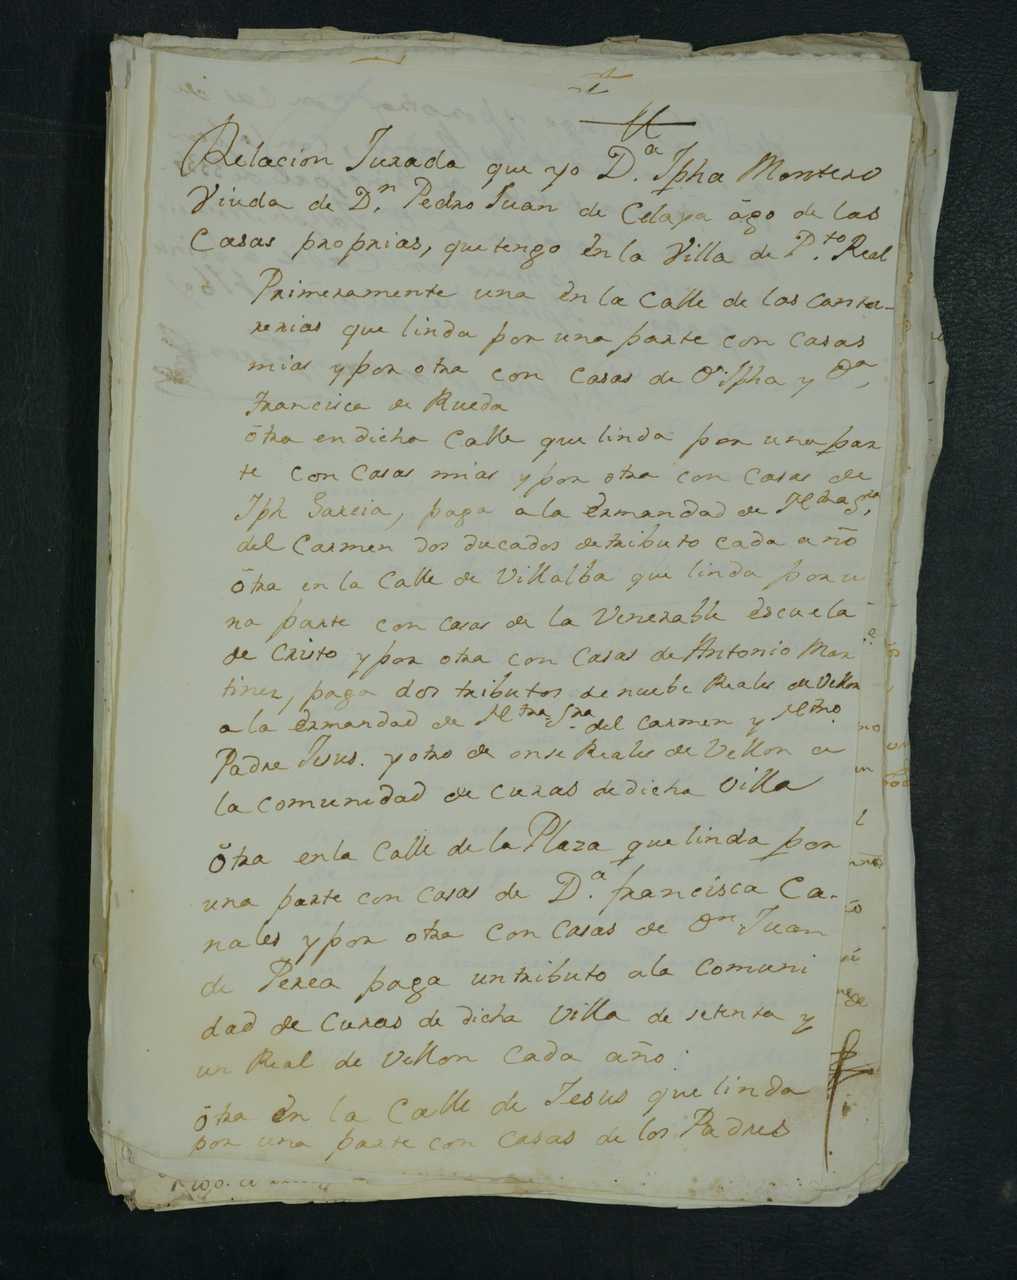 Relacion Jurada que yo D.ª Jpha Montero
Viuda de D.n Pedro Juan de Celaya ágo de las
Casas proprias, que tengo en la Villa de P.to Real
Primeramente una en la Calle de las canta-
rerias que linda por una parte con casas
mias y por otra con casas de D.ª Jpha y D.ª
Francisca de Rueda
ótra en dicha Calle que linda por una par
te con casas mias y por otra con casas de
Jph Garcia, paga a la ermandad de Ntra Sra
del Carmen dos ducados de tributo cada año
ótra en la Calle de Villalba que linda por u
na parte con casas de la Venerable escuela
de Cristo y por otra con casas de Antonio Mar
tinez, paga dos tributos de nuebe Reales de Vellon
a la ermandad de Ntra Sra del Carmen y Ntro
Padre Jesus. y otro de onse Reales de Vellon a
la comunidad de curas de dicha Villa
ótra en la Calle de la Plaza que linda por
una parte con casas de D.ª francisca Ca-
nales y por otra con casas de Dn Juan
de Perea paga un tributo a la Comuni
dad de Curas de dicha Villa de setenta y
un Real de Vellon Cada año.
ótra en la Calle de Jesus que linda
por una parte con casas de los Padres